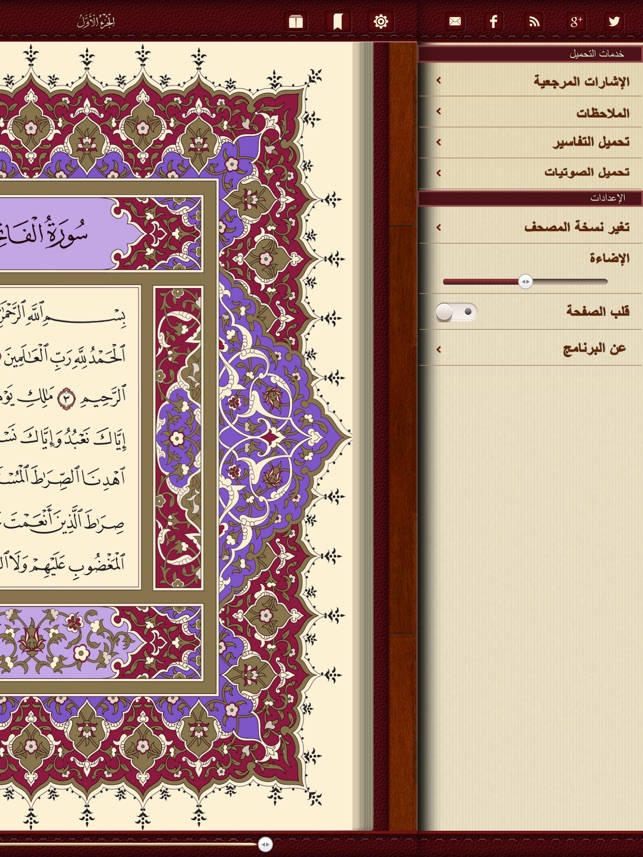 الجُزْءُ الأَوَّلُ
خدمات التحميل
الإشارات المرجعية
الملاحظات
تحميل التفاسير
تحميل الصوتيات
الإعدادات
تغير نسخة المصحف
الإضاءة
قلب الصفحة
عن البرنامج
سُورَةُ
بِسْمِ اللَّهِ
الْحَمْدُ لِلَّهِ رَبِّ الْعَالَمِينَ
الرَّحِيمِ ٣ مَالِكِ
إِيَّاكَ نَعْبُدُ وَإِيَّاكَ
اهْدِنَا الصِّرَاطَ
صِرَاطَ الَّذِينَ أَنْعَمْتَ
الْمَغْضُوبِ عَلَيْهِمْ وَلَا